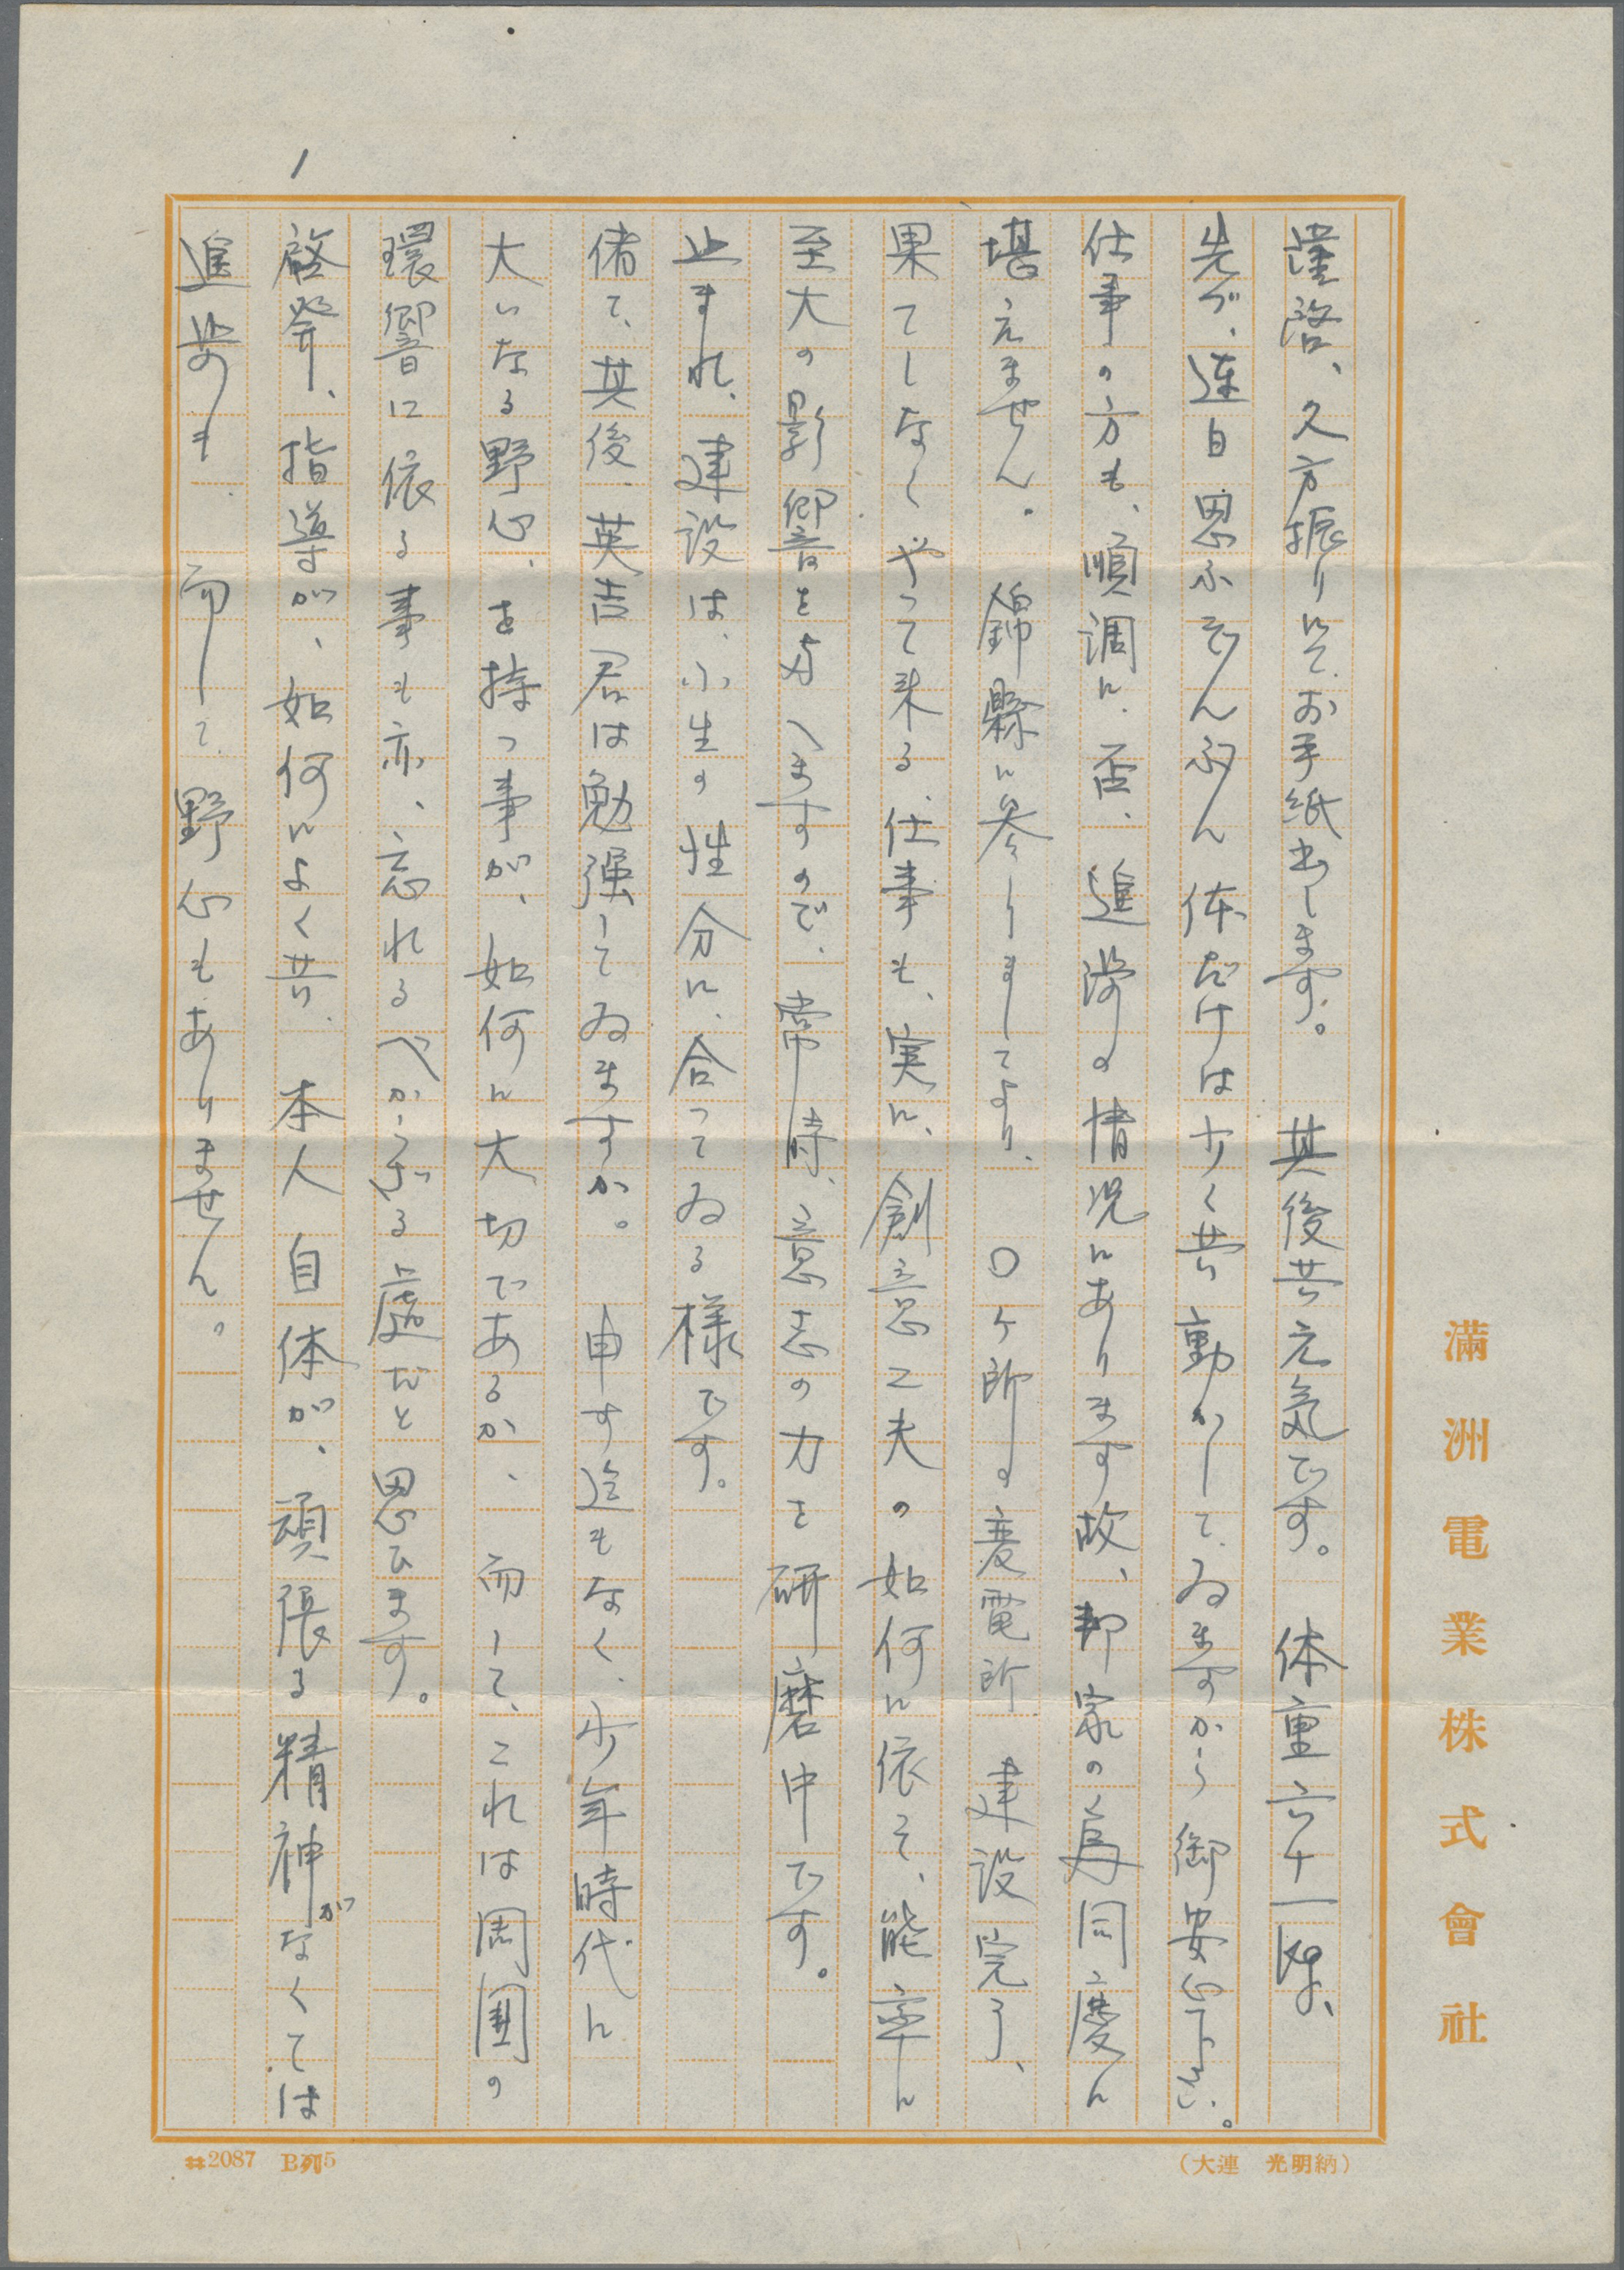 滿洲電業株式會社
謹啓、久方振りにて、お手紙出します。其後共元気です。体重六十一kg、
先づ、連日思ふぞんぶん体だけは少く共動かして、ゐますから御安心下さい。
仕事の方も、順調に、否、進渉の情況にあります故、邦家の為同慶に
堪えません。錦縣に参りましてより、〇ヶ所の変電所建設完了、
果てしなくやって来る、仕事も、実に、創意工夫の如何に依て、能率に
至大の影響を与へますので、常時、意志の力を研磨中です。
止まれ、建設は、小生の性分に、合ってゐる様です。
偖て、其後、英吉君は勉强してゐますか。申す迄もなく、少年時代に
大いなる野心、を持つ事が、如何に大切であるか、而して、これは周囲の
環響に依る事も亦、忘れるべからざる處だと思ひます。
啓発、指導が、如何によく共、本人自体が、頑張る精神がなくては
進歩も、而して、野心もありません。
1
(大連 光明納)
#2087 B列5